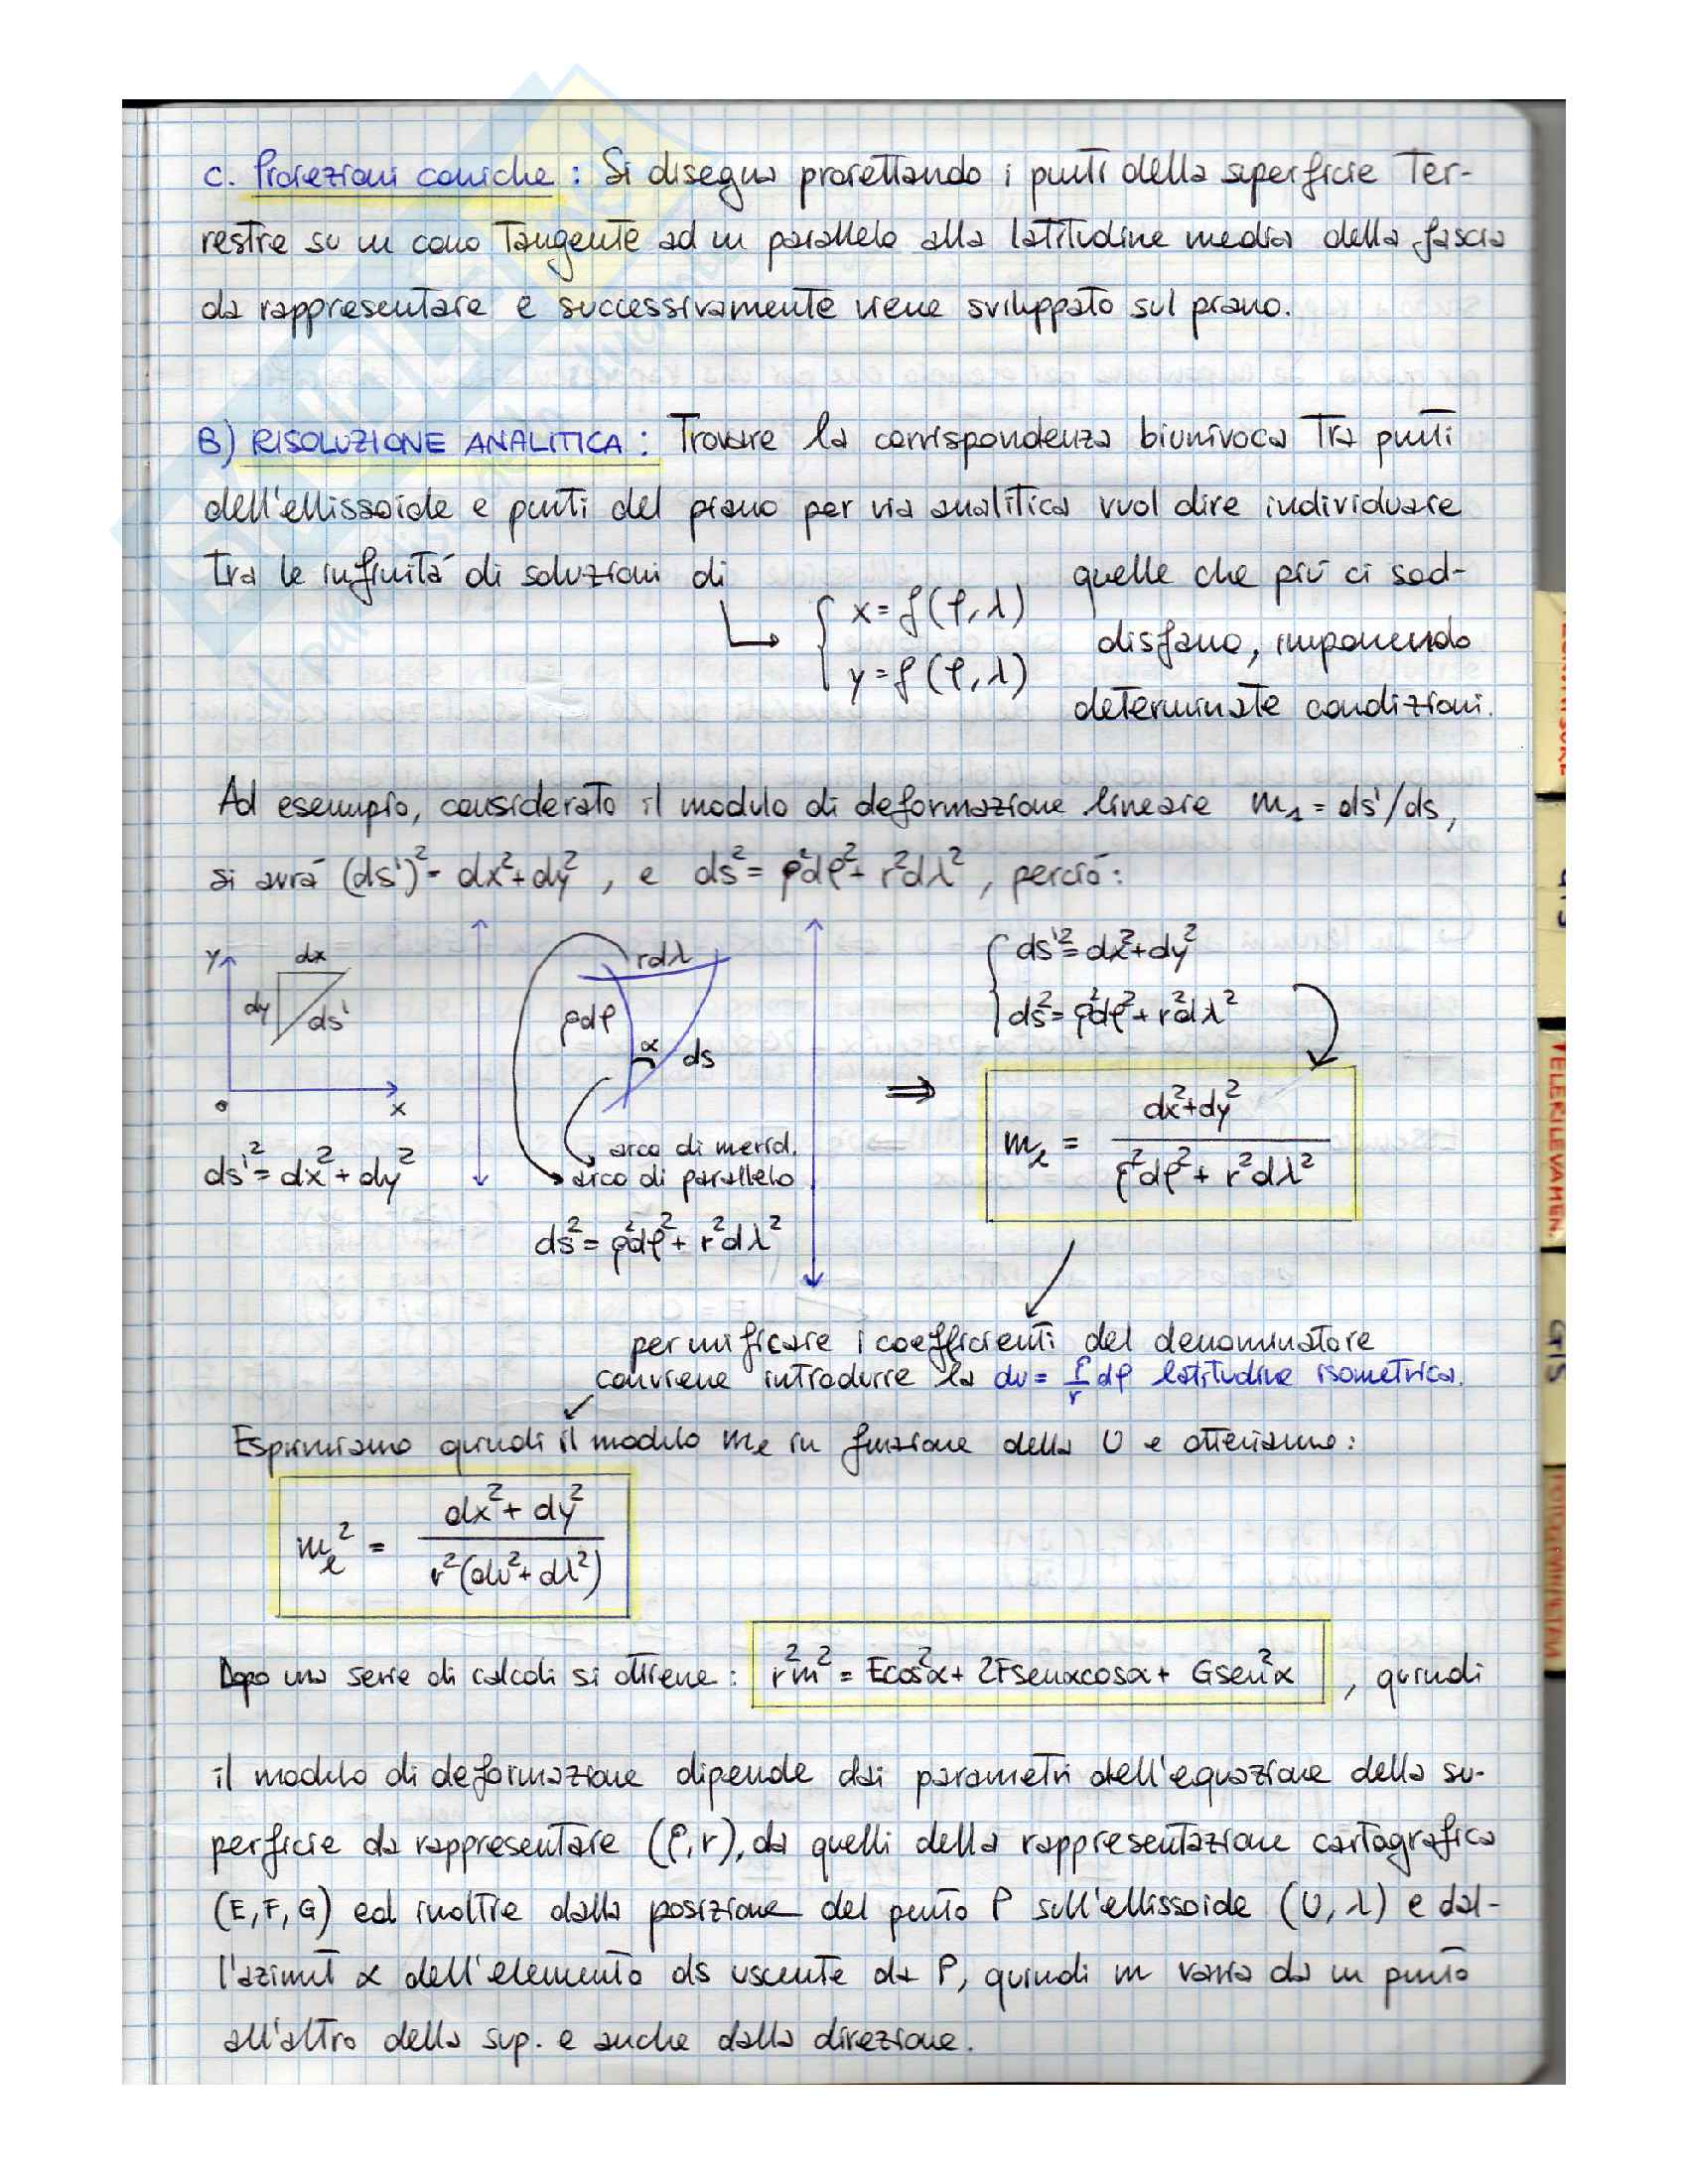 c. Proiezioni coniche : Si disegna proiettando i punti della superficie Ter-
restre su un cono Tangente ad un parallelo alla latitudine media della fascia
da rappresentare e successivamente viene sviluppato sul piano.
B) RISOLUZIONE ANALITICA : Trovare la corrispondenza biunivoca Tra punti
dell'ellissoide e punti del piano per via analitica vuol dire individuare
Tra le infinità di soluzioni di { x = f(φ,λ) quelle che più ci sod-
y = f(φ,λ) disfano, imponendo
determinate condizioni.
Ad esempio, considerato il modulo di deformazione lineare m₁ = ds'/ds,
si avrà (ds')² = dx²+dy² , e ds² = ρ²dφ²+ r²dλ² , perciò :
y dx
dy ds'
o x
ds'² = dx² + dy²
rdλ
ρdφ
α ds
arco di merid.
arco di parallelo
ds² = ρ²dφ² + r²dλ²
{ ds'² = dx²+dy²
ds² = ρ²dφ² + r²dλ²
⇒ mₑ = dx²+dy² / ρ²dφ² + r²dλ²
per unificare i coefficienti del denominatore
conviene introdurre la du = ρ/r dφ latitudine isometrica.
Esprimiamo quindi il modulo mₑ in funzione della U e otteniamo :
mₑ² = dx² + dy² / r²(du²+dλ²)
Dopo una serie di calcoli si ottiene : r²m² = Ecos²α + 2Fsenαcosα + Gsen²α , quindi
il modulo di deformazione dipende dai parametri dell'equazione della su-
perficie da rappresentare (ρ,r), da quelli della rappresentazione cartografica
(E,F,G) ed inoltre dalla posizione del punto P sull'ellissoide (U,λ) e dal-
l'azimut α dell'elemento ds uscente da P, quindi m varia da un punto
all'altro della sup. e anche dalla direzione.
GIS
TELERILEVAMEN.
GIS